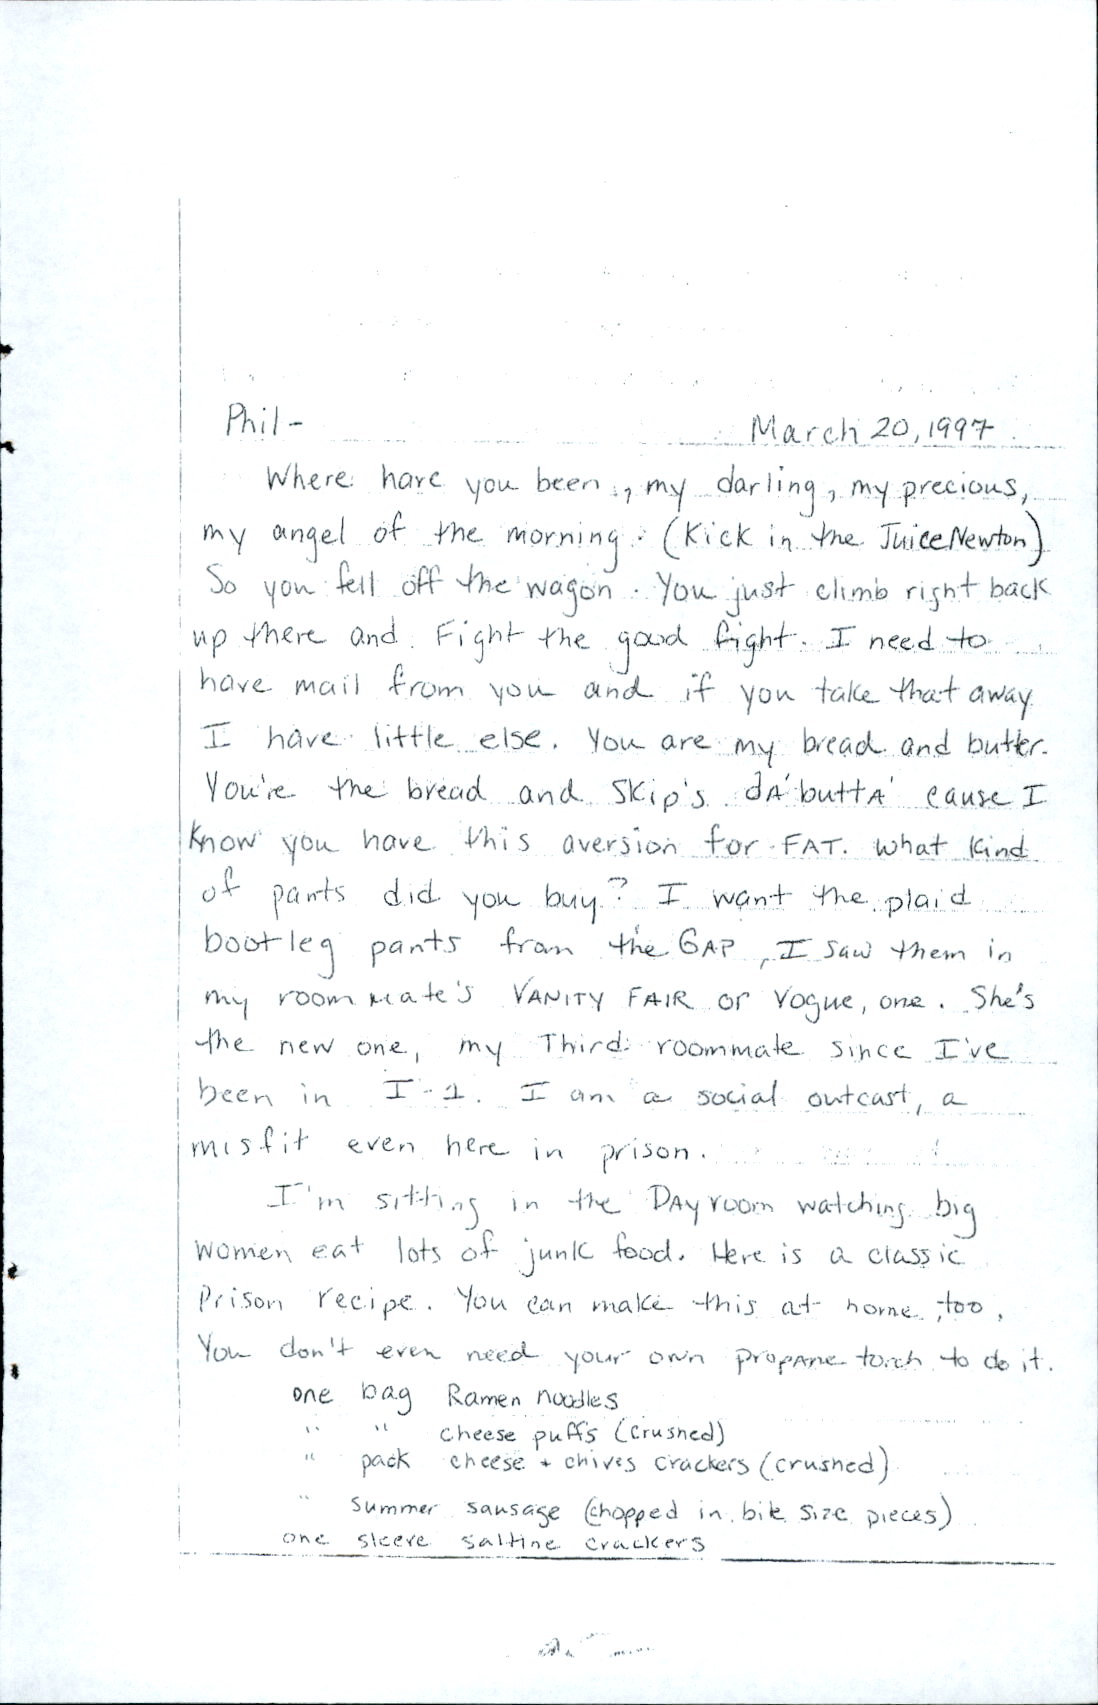 Phil - March 20, 1997
Where have you been, my darling, my precious,
my angel of the morning. (Kick in the Juice Newton)
So you fell off the wagon. You just climb right back
up there and Fight the good fight. I need to
have mail from you and if you take that away
I have little else. You are my bread and butter.
You're the bread and Skip's dA' buttA' cause I
know you have this aversion for FAT. What kind
of pants did you buy? I want the plaid
bootleg pants from the GAP, I saw them in
my roommate's VANITY FAIR or Vogue, one. She's
the new one, my Third roommate since I've
been in I-1. I am a social outcast, a
misfit even here in prison.
I'm sitting in the DAyroom watching big
women eat lots of junk food. Here is a classic
Prison recipe. You can make this at home, too.
You don't even need your own propAne torch to do it.
one bag Ramen noodles
" " cheese puffs (crushed)
" pack cheese + chives crackers (crushed)
" Summer sausage (chopped in bite size pieces)
one sleeve saltine crackers